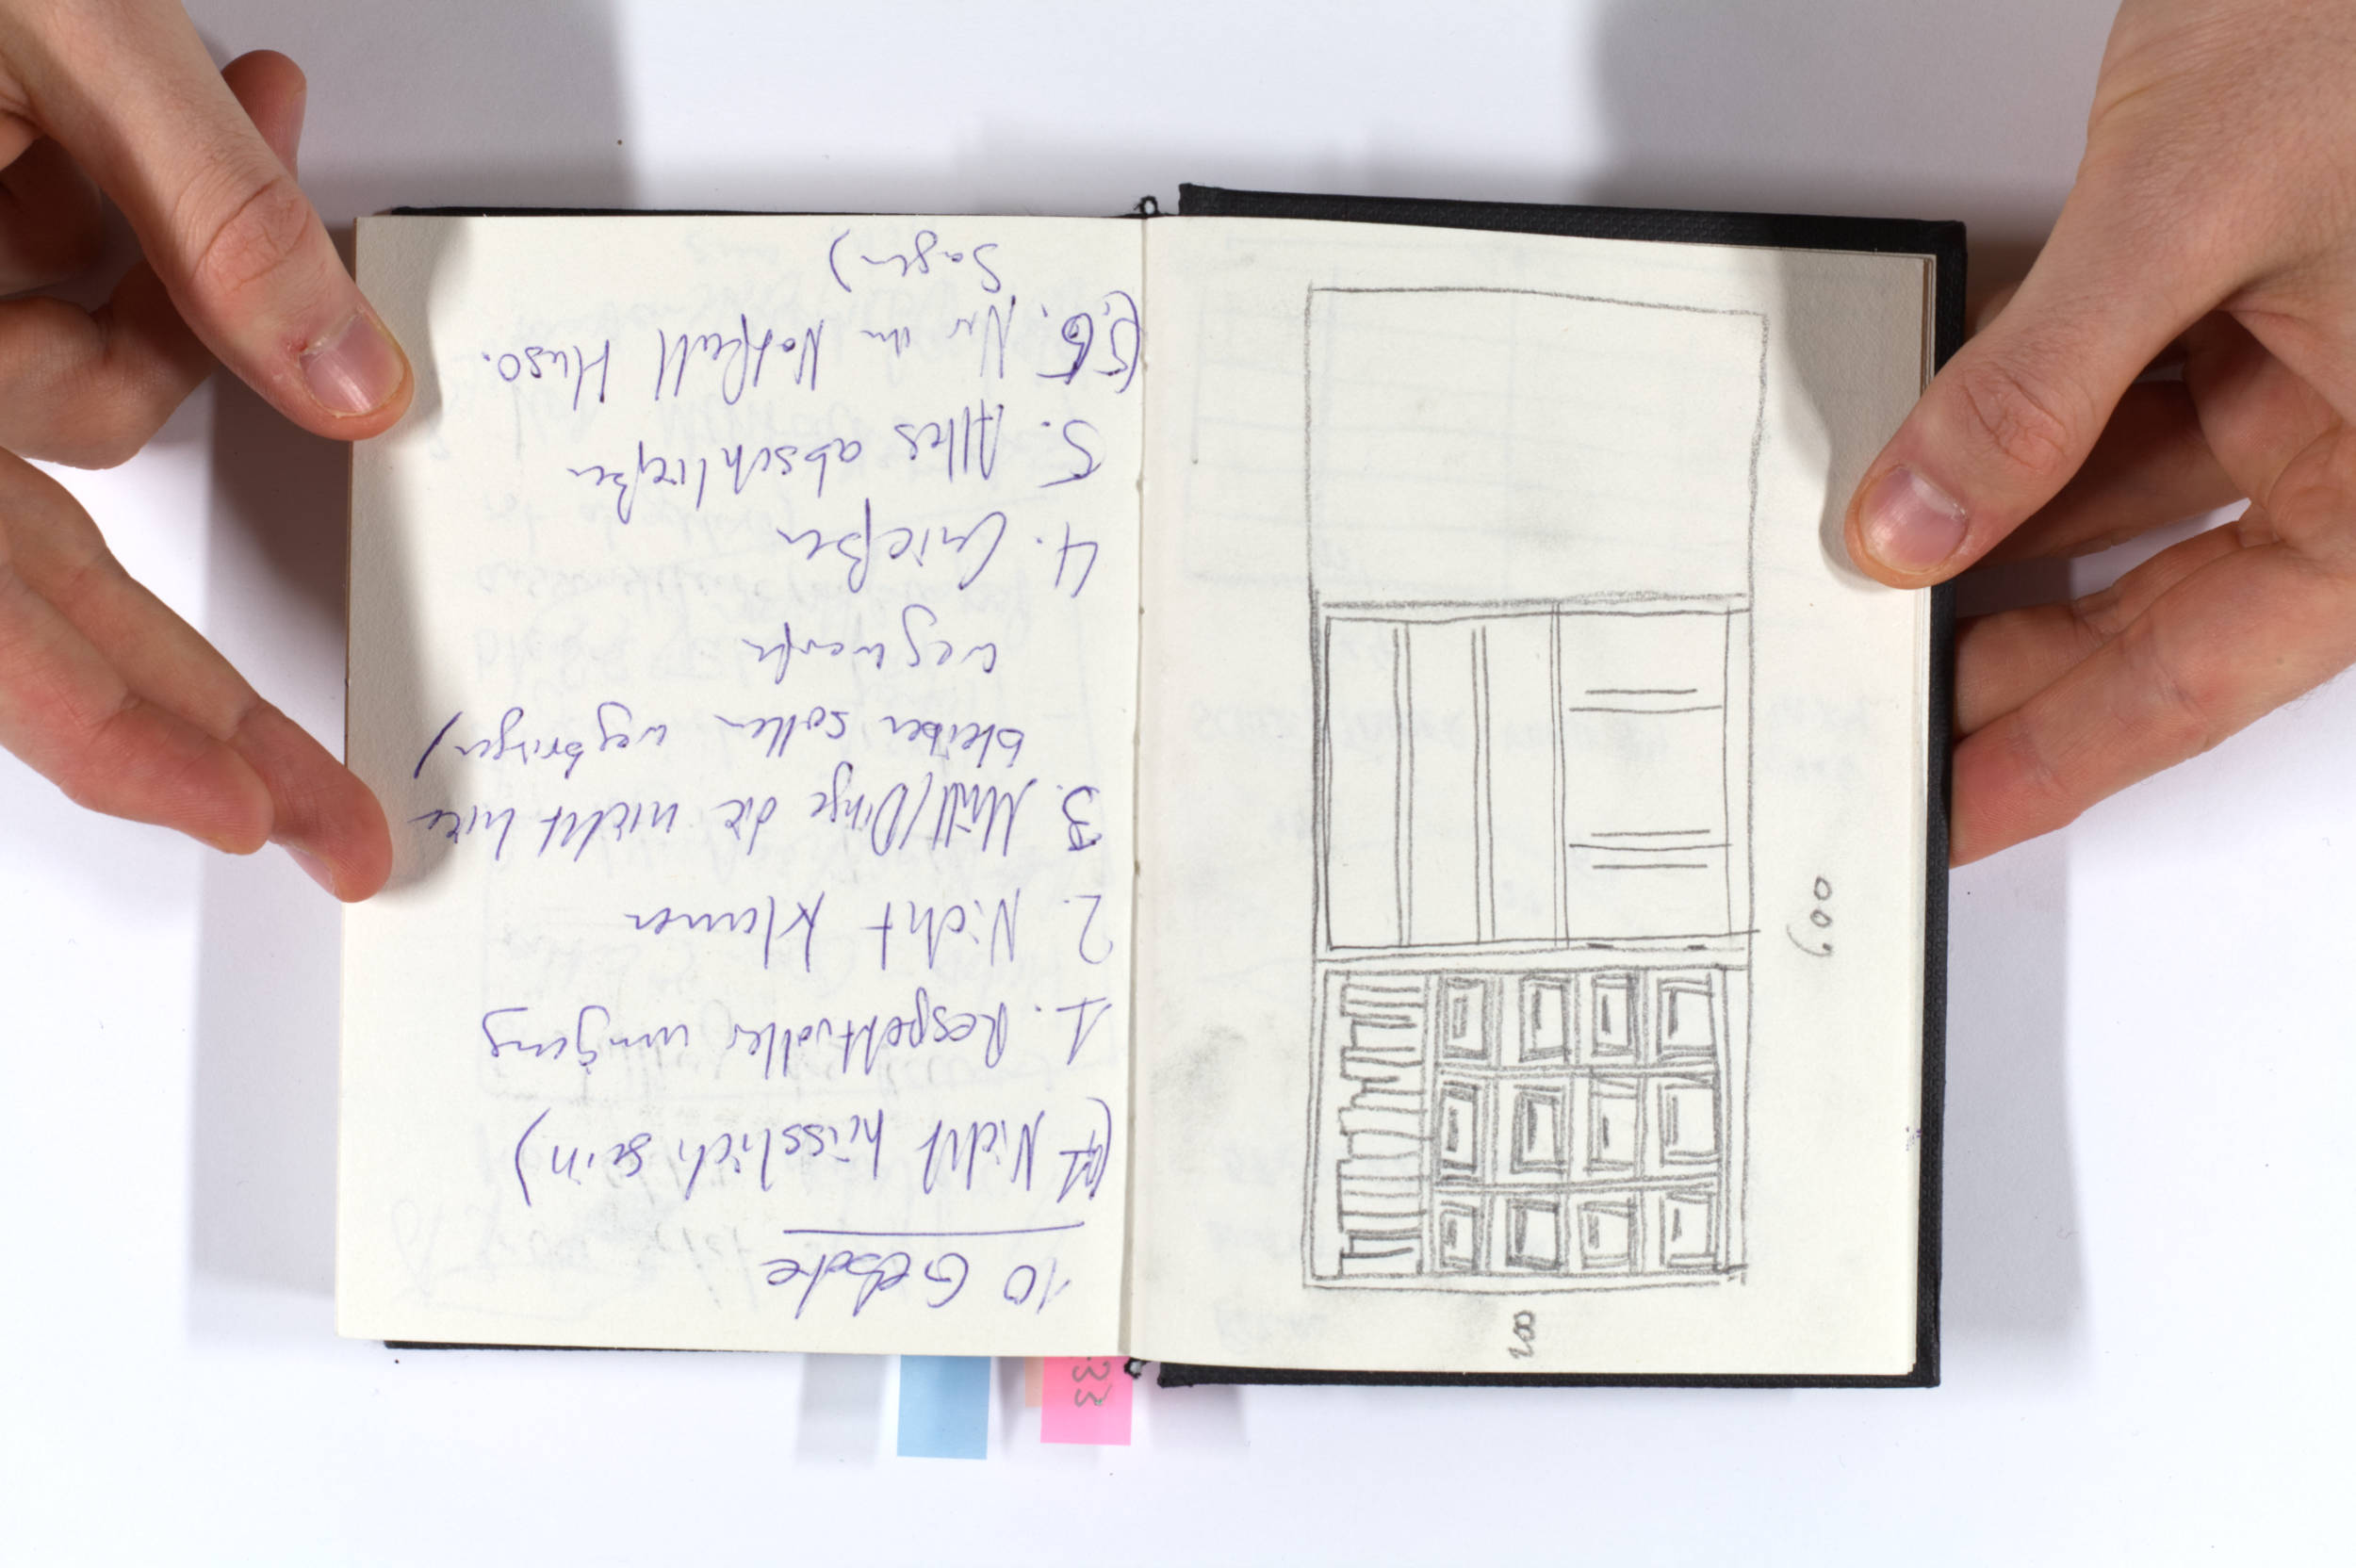 10 Gebote
Nicht hässlich sein)
1. Respektvoller umgang
2. Nicht klauen
3. Müll/Dinge die nicht hier
bleiben sollen wegbringen)
wegwerfen
4. Gießen
5. Alles abschließen
Nur im Notfall Huso.
sagen)
600
200
33